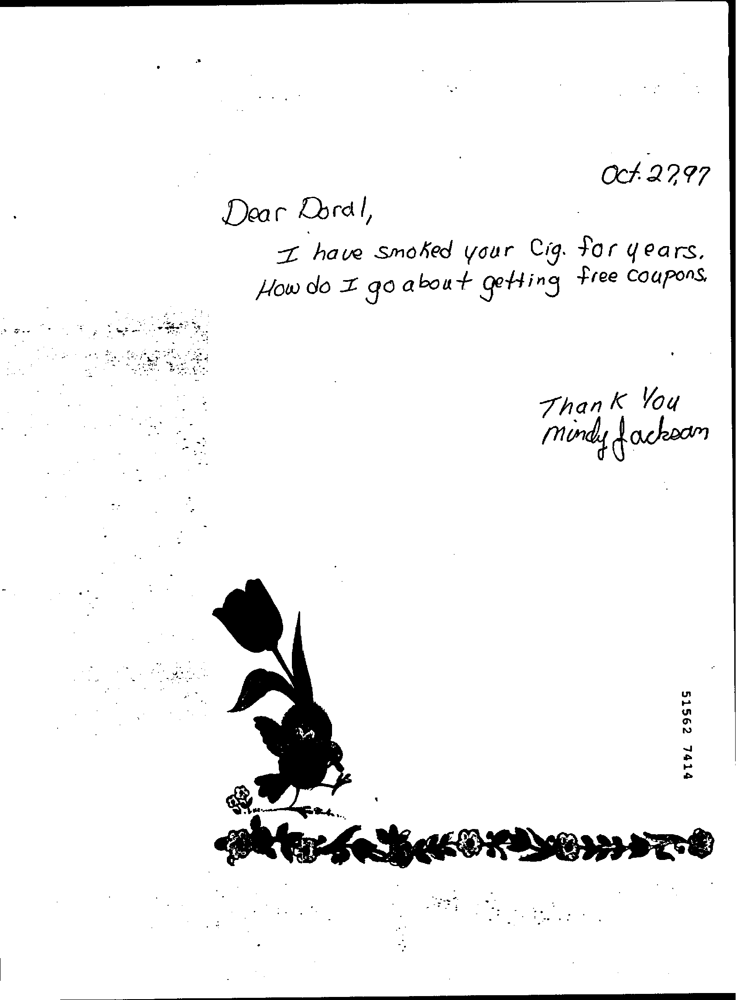 Oct. 27, 97
Dear Doral,
I have smoked your Cig. for years.
How do I go about getting free coupons.
Thank You
Mindy Jackson
51562 7414